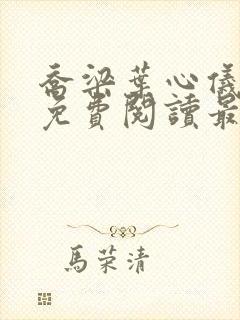 喬梁葉心儀
免費閱讀最
馬荣清